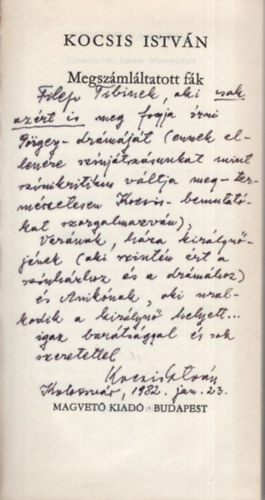 KOCSIS ISTVÁN
Megszámláltatott fák
Filep Tibinek, aki csak
azért is meg fogja írni
Görgey-drámáját (ennek el-
lenére színjátszásunkat mint
színikritikus váltja meg - ter-
mészetesen Kocsis-bemutató-
kat szorgalmazván),
Verának, háza királynő-
jének (aki szintén ért a
színházhoz és a drámához)
és Anikónak, aki ural-
kodik a királynő helyett...
igaz barátsággal és sok
szeretettel
Kocsis István
Kolozsvár, 1982. jan. 23.
MAGVETŐ KIADÓ · BUDAPEST